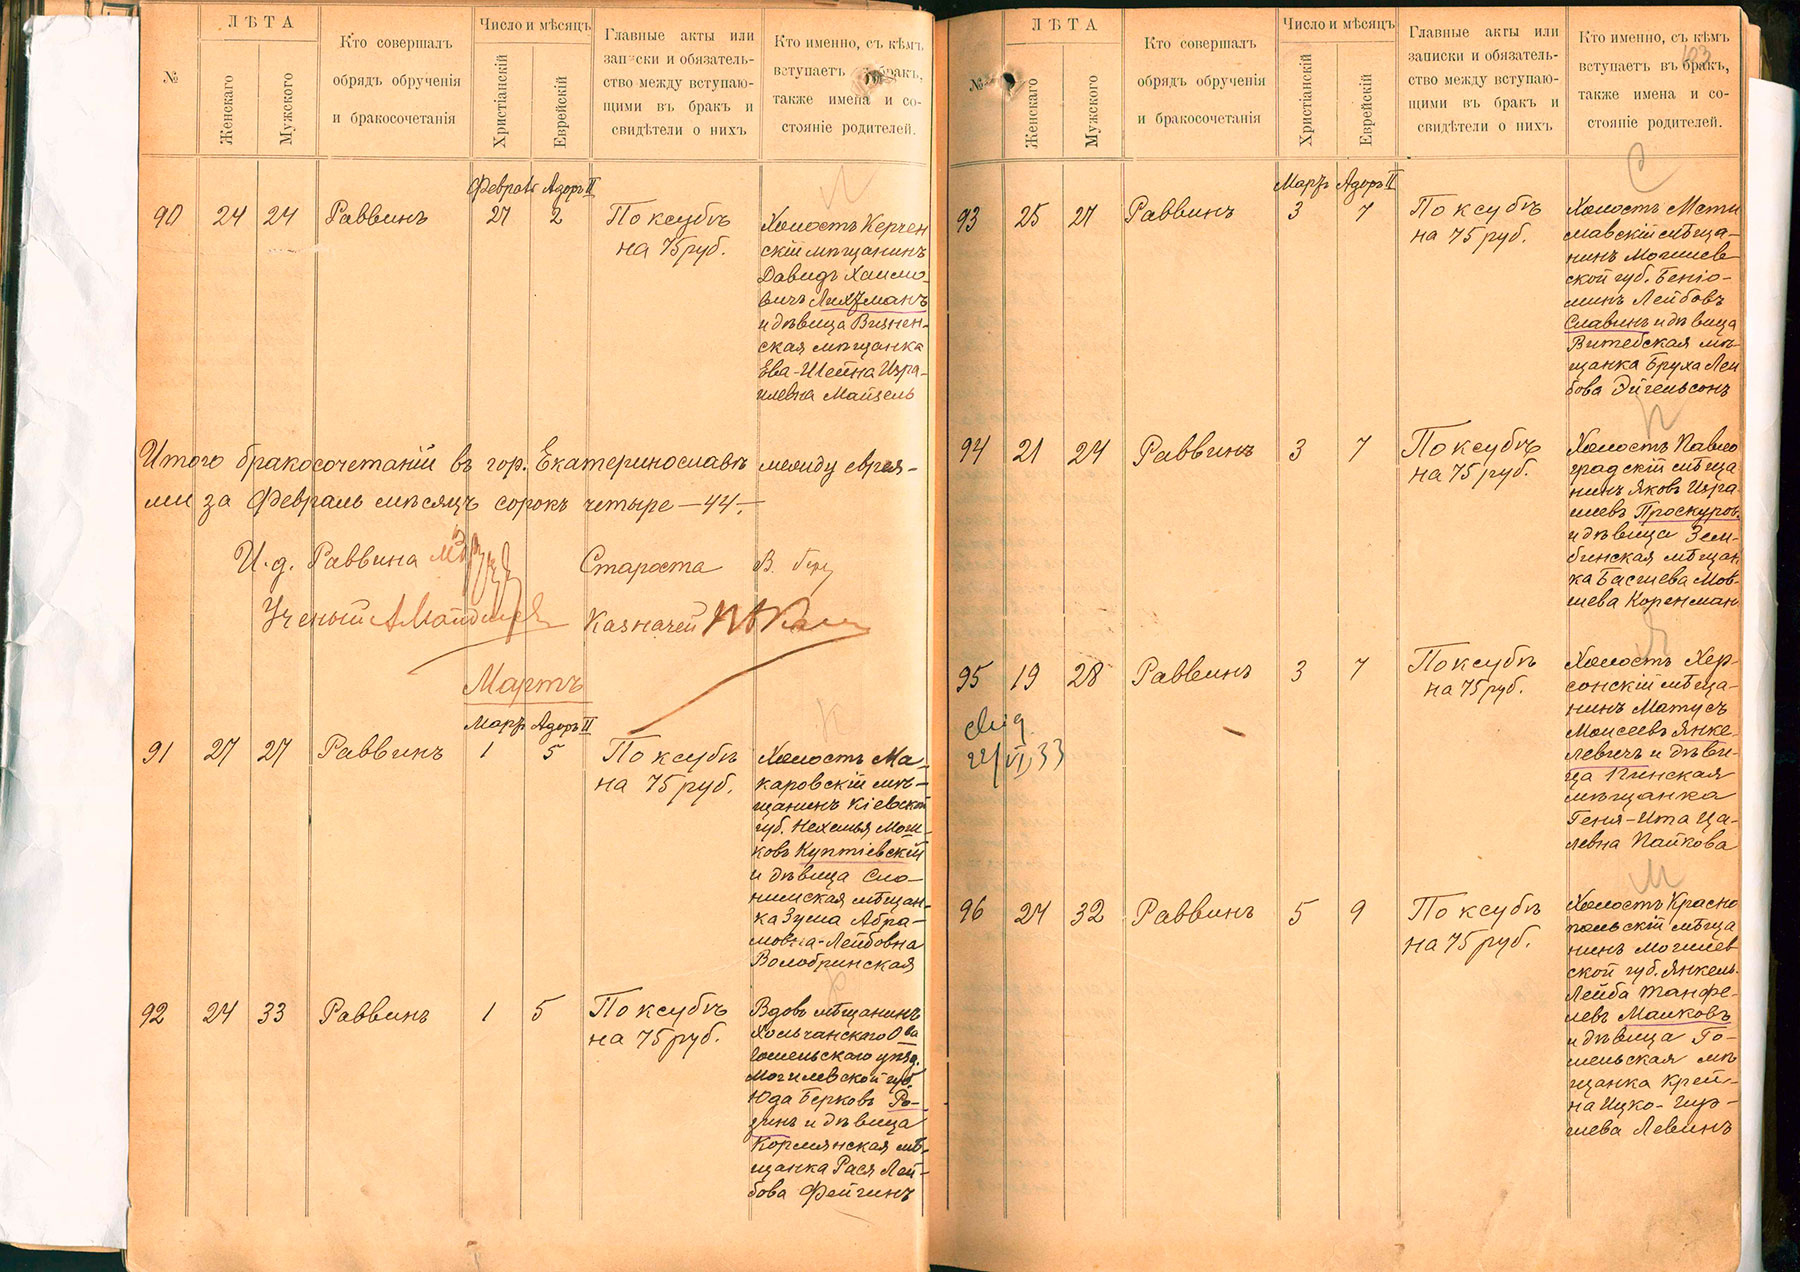 №
ЛѢТА
Женскаго
Мужского
Кто совершалъ
обрядъ обрученія
и бракосочетанія
Число и мѣсяцъ
Христіанскій
Еврейскій
Главные акты или
записки и обязатель-
ство между вступаю-
щими въ бракъ и
свидѣтели о нихъ
Кто именно, съ кѣмъ
вступаетъ бракъ,
также имена и со-
стояніе родителей.
Адоръ II
90 24 24 Раввинъ 27 2 По ксубѣ
на 75 руб.
Холостъ Керчен
скій мѣщанинъ
Давидъ Хаимо-
вичъ Лихтманъ
и дѣвица
ская мѣщанка
Ева-Шейна Изра-
илевна Майзель
Итого бракосочетаній въ гор. Екатеринославѣ между еврея-
ми за Февраль мѣсяцъ сорокъ четыре —44.—
И.д. Раввина
Староста
Ученый
Казначей
Мартъ
Мартъ Адоръ II
91 27 27 Раввинъ 1 5 По ксубѣ
на 75 руб.
Холостъ Ма-
каровскій мѣ-
щанинъ Кіевской
губ. Нехемья Мош-
ковъ Куптіевскій
и дѣвица Сло-
нимская мѣщан-
ка Зума Абра-
мовна-Лейбовна
Волобринская
92 24 33 Раввинъ 1 5 По ксубѣ
на 75 руб.
Вдовъ мѣщанинъ
Хольчанскаго О-ва
Гомельскаго уѣзд.
Могилевской губ.
Юда Берковъ Ро-
зинъ и дѣвица
Кормянская мѣ-
щанка Рася Лей-
бова Фейгинъ
№
ЛѢТА
Женскаго
Мужского
Кто совершалъ
обрядъ обрученія
и бракосочетанія
Число и мѣсяцъ
Христіанскій
Еврейскій
Главные акты или
записки и обязатель-
ство между вступаю-
щими въ бракъ и
свидѣтели о нихъ
Кто именно, съ кѣмъ
вступаетъ въ бракъ,
также имена и со-
стояніе родителей.
С
Мартъ Адоръ II
93 25 27 Раввинъ 3 7 По ксубѣ
на 75 руб.
Холостъ Мсти
славскій мѣща-
нинъ Могилев-
ской губ. Беніо-
минъ Лейбовъ
Славинъ и дѣвица
Витебская мѣ-
щанка Бруха Лей
бова Эйгельсонъ
П
94 21 24 Раввинъ 3 7 По ксубѣ
на 75 руб.
Холостъ Павло
градскій мѣща
нинъ Яковъ Изра
илевъ Проскуров.
и дѣвица Зем-
бинская мѣщан
ка Басшева Мов-
шева Коренман
Я
95 19 28 Раввинъ 3 7 По ксубѣ
на 75 руб.
22/VI 33
Холостъ Хер-
сонскій мѣща-
нинъ Матусъ
Моисеевъ Янке-
левичъ и дѣви-
ца Пинская
мѣщанка
Геня-Ита Ца-
левна Пайкова
М
96 24 32 Раввинъ 5 9 По ксубѣ
на 75 руб.
Холостъ Красно
польскій мѣща
нинъ Могилев
ской губ. Янкель-
Лейба Танфе-
левъ Малковъ
и дѣвица Го-
мельская мѣ
щанка Крей-
на Ицко-Гир-
шева Левинъ